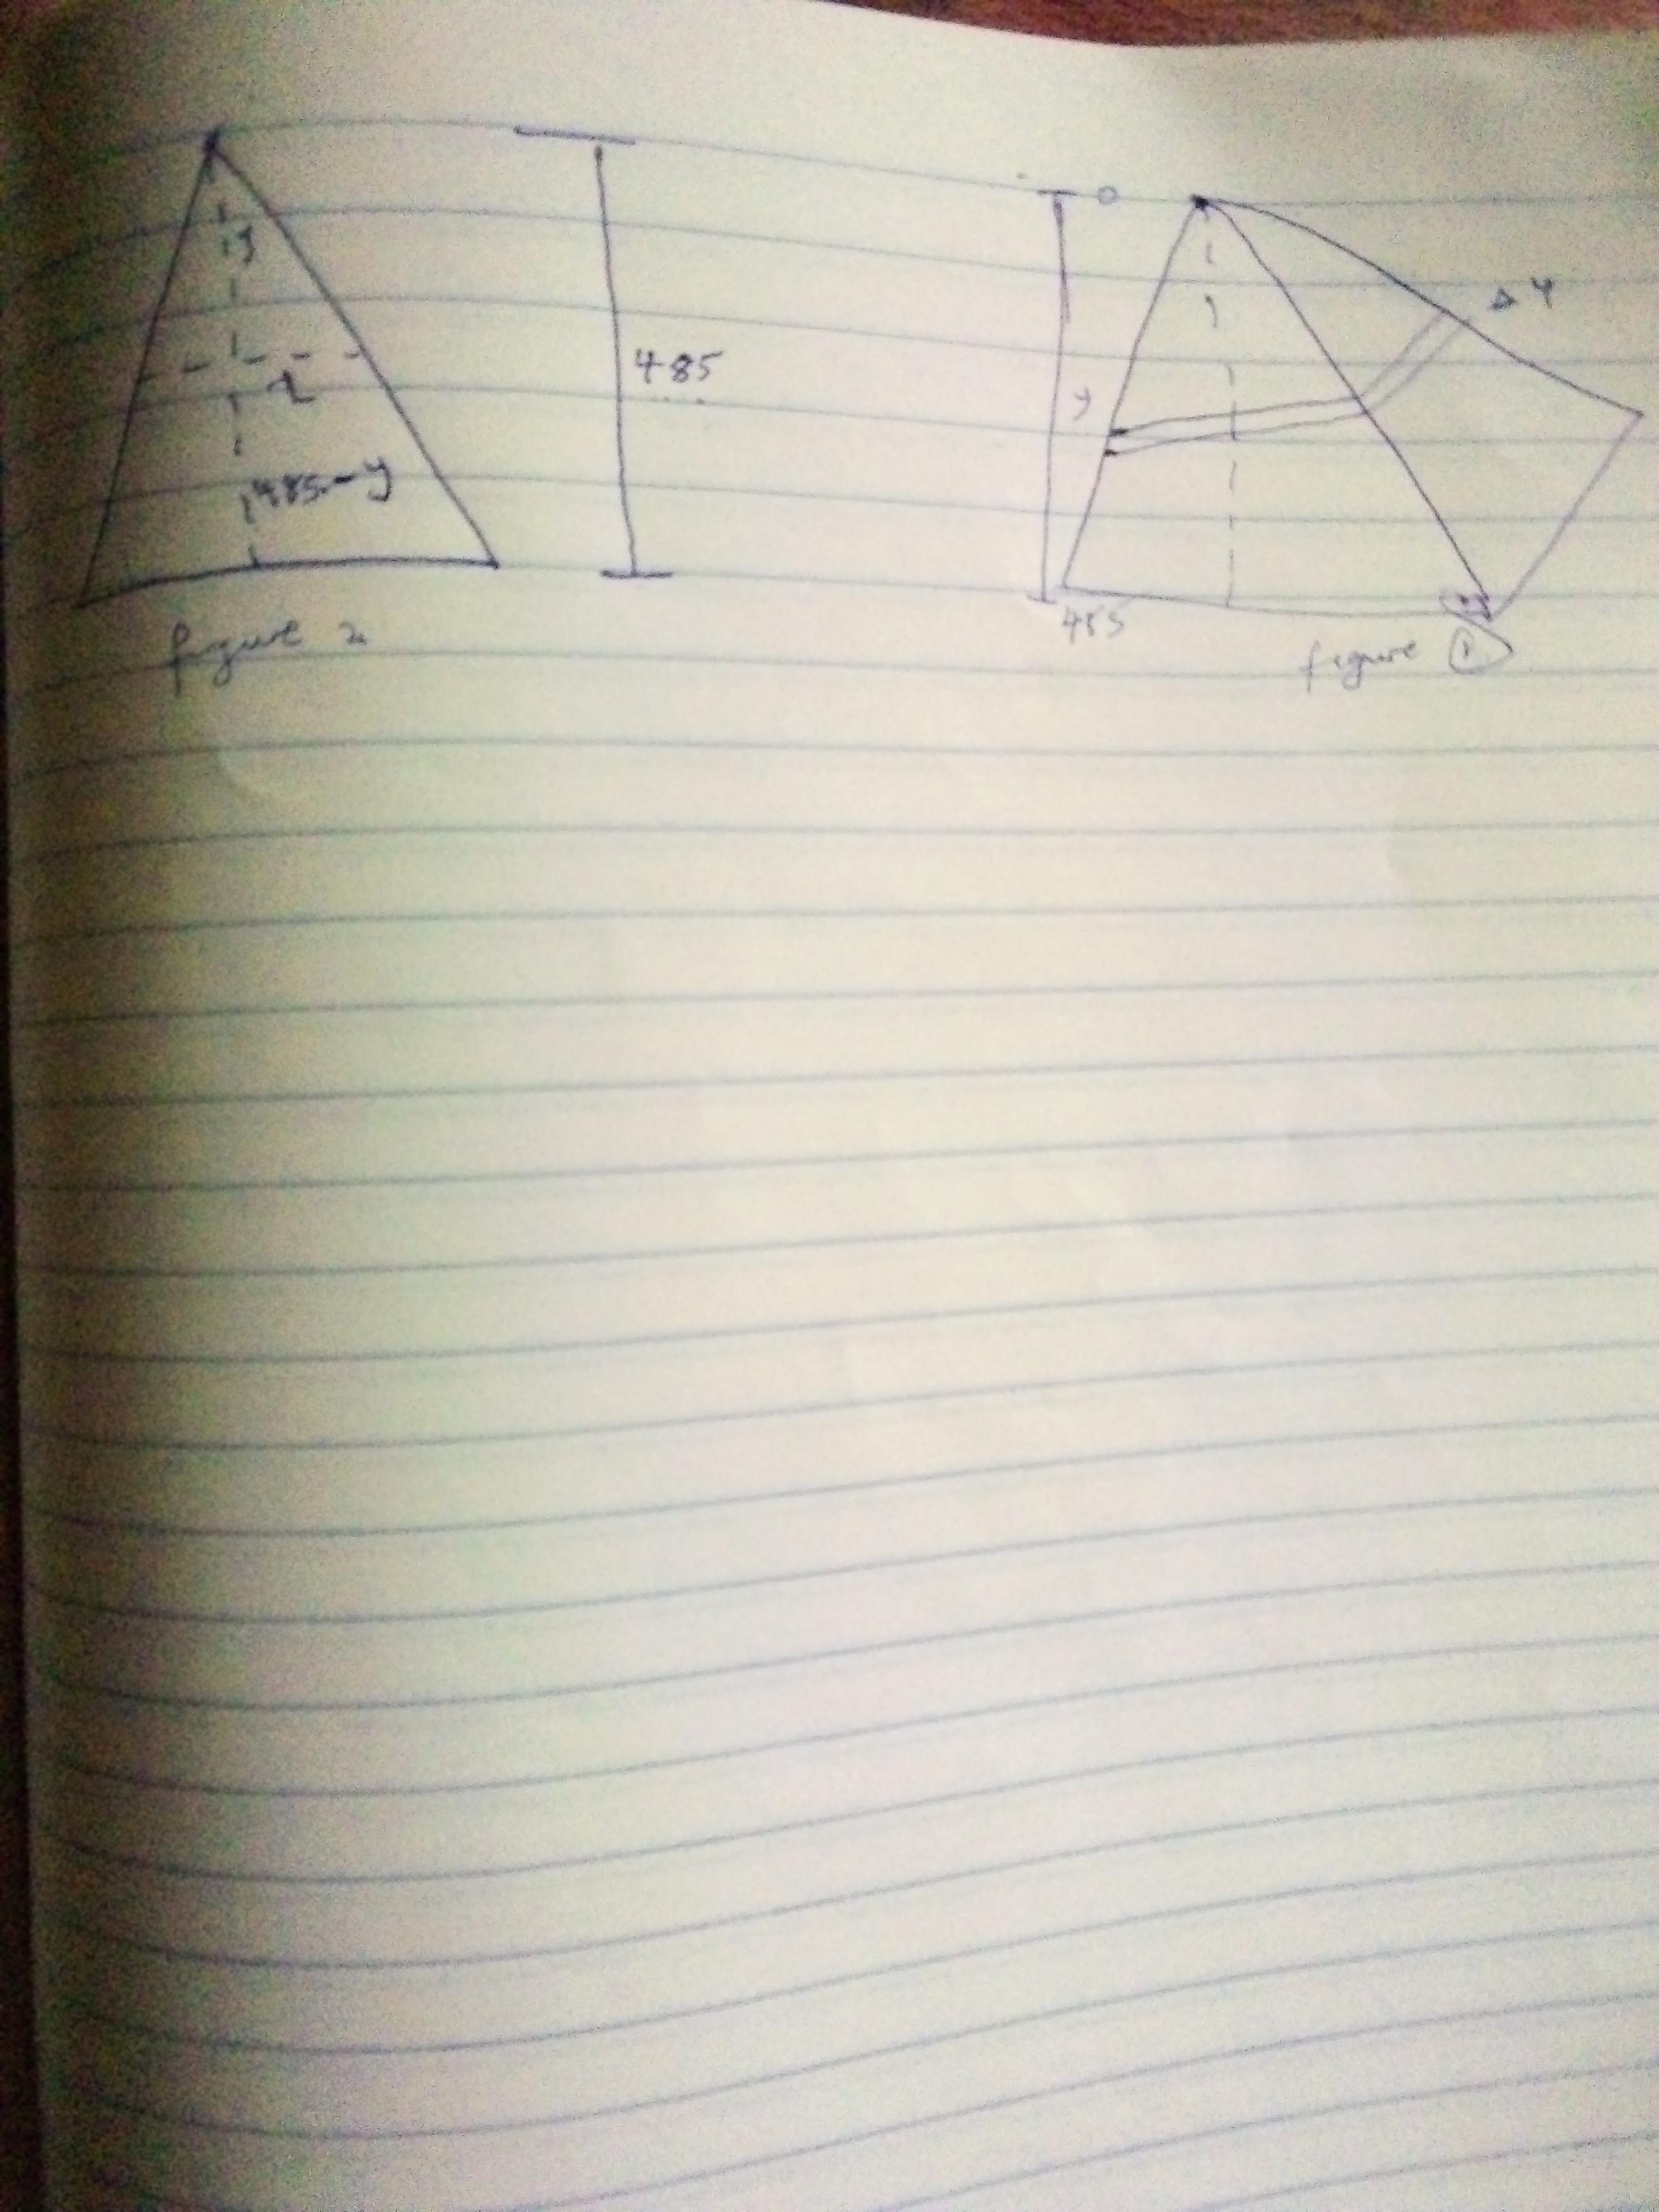 y
x
485
485-y
figure 2
0
Δy
y
485
figure 1